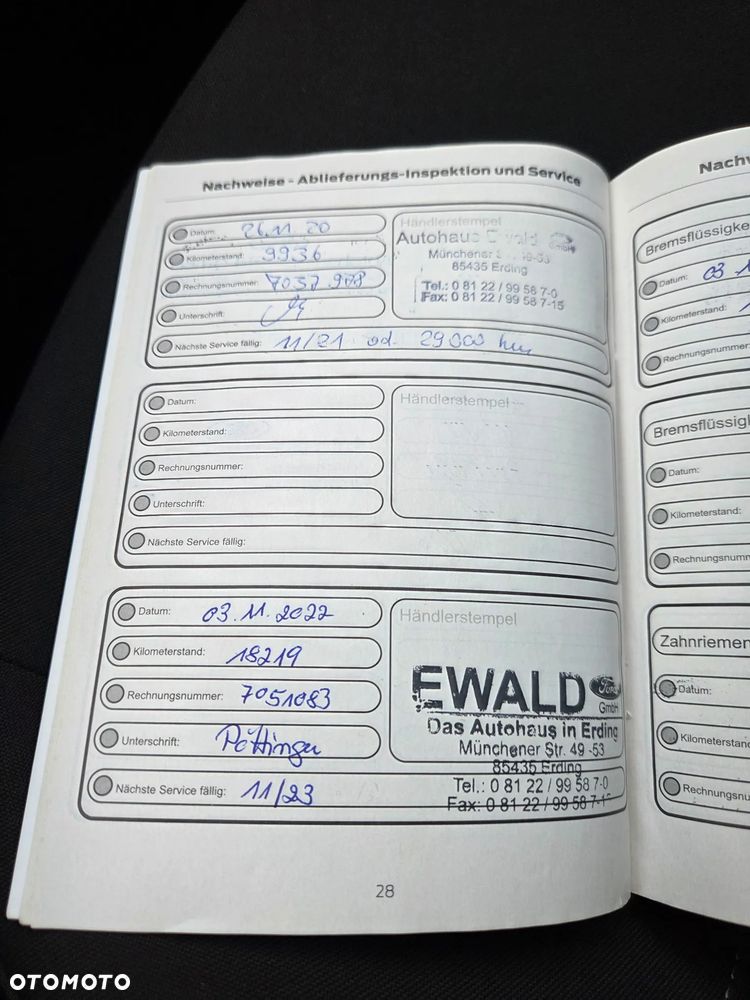 Nachweise - Ablieferungs-Inspektion und Service
Datum: 26.11.20
Kilometerstand: 9936
Rechnungsnummer: 7037 978
Unterschrift:
Nächste Service fällig: 11/21 od. 29000 km
Händlerstempel
Autohaus Ewald GmbH
Münchener 49-53
85435 Erding
Tel.: 0 81 22 / 99 58 7-0
Fax: 0 81 22 / 99 58 7-15
Datum:
Kilometerstand:
Rechnungsnummer:
Unterschrift:
Nächste Service fällig:
Händlerstempel
Datum: 03.11.2022
Kilometerstand: 18219
Rechnungsnummer: 7051083
Unterschrift: Pöttinger
Nächste Service fällig: 11/23
Händlerstempel
EWALD Ford GmbH
Das Autohaus in Erding
Münchener Str. 49 -53
85435 Erding
Tel.: 0 81 22 / 99 58 7-0
Fax: 0 81 22 / 99 58 7-1
28
Nachw
Bremsflüssigke
Datum: 03 1
Kilometerstand:
Rechnungsnummer:
Bremsflüssigl
Datum:
Kilometerstand:
Rechnungsnumm
Zahnriemen
Datum:
Kilometerstand
Rechnungsnu
OTOMOTO